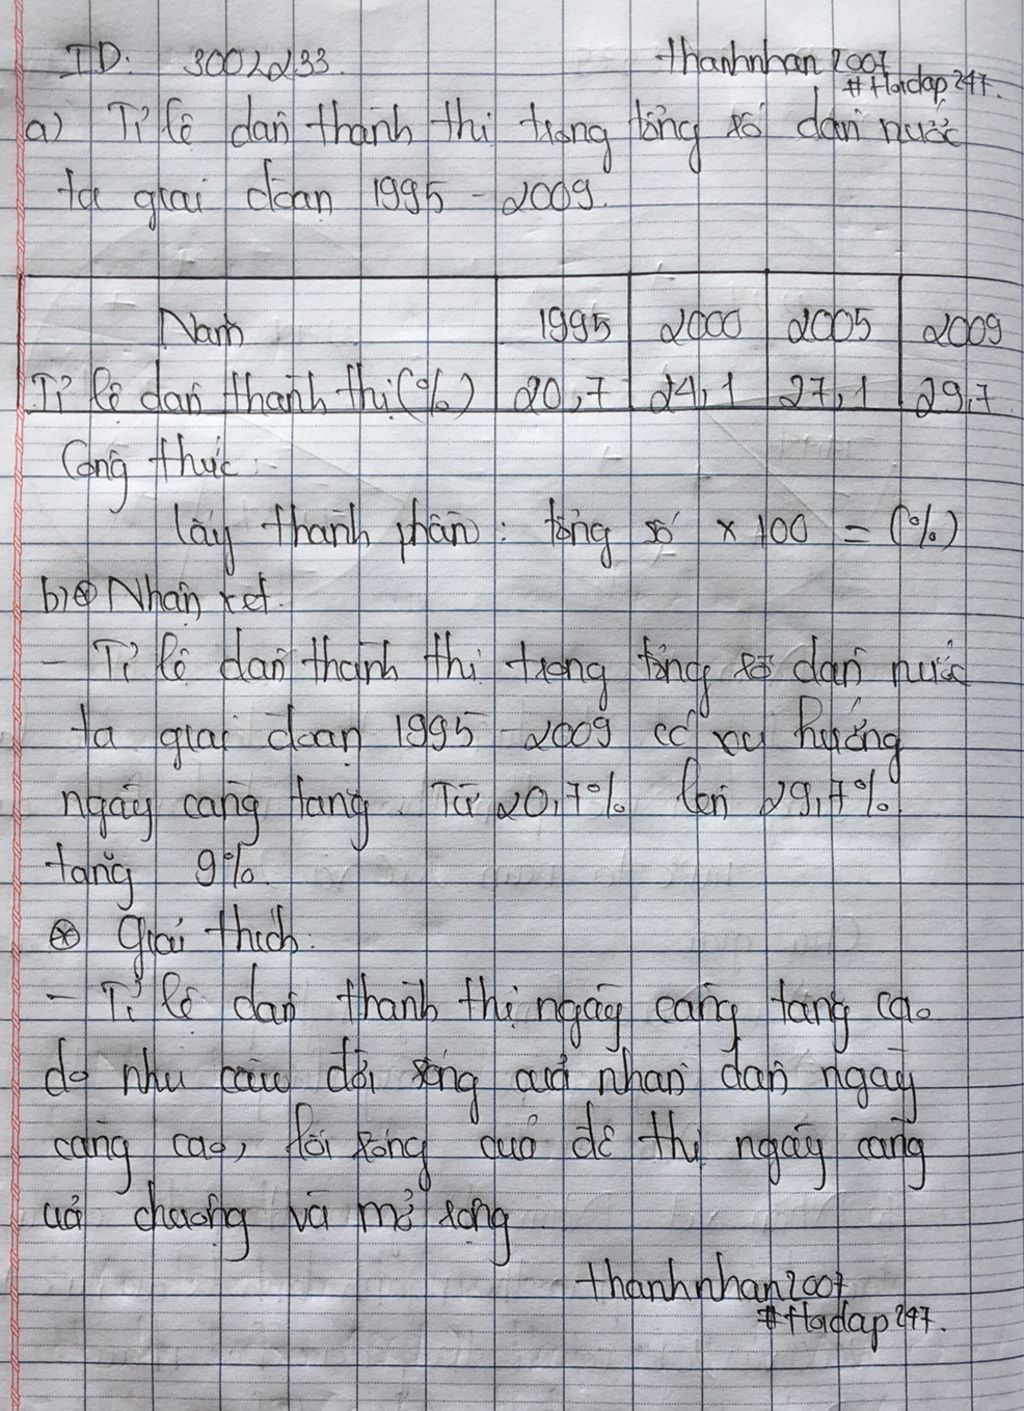 ID: 3002233. thanhnhan2007
#Hoidap247.
a) Tỉ lệ dân thành thị trong tổng số dân nước
ta giai đoạn 1995 - 2009.
Năm 1995 2000 2005 2009
Tỉ lệ dân thành thị (%) 20,7 24,1 27,1 29,7
Công thức:
lấy thành phần : tổng số x 100 = (%)
b) ⊛ Nhận xét.
- Tỉ lệ dân thành thị trong tổng số dân nước
ta giai đoạn 1995 - 2009 có xu hướng
ngày càng tăng. Từ 20,7% lên 29,7%
tăng 9%.
⊛ Giải thích:
- Tỉ lệ dân thành thị ngày càng tăng cao
do nhu cầu đời sống của nhân dân ngày
càng cao, lối sống đô thị ngày càng
và mở rộng
thanhnhan2007
#Hoidap247.